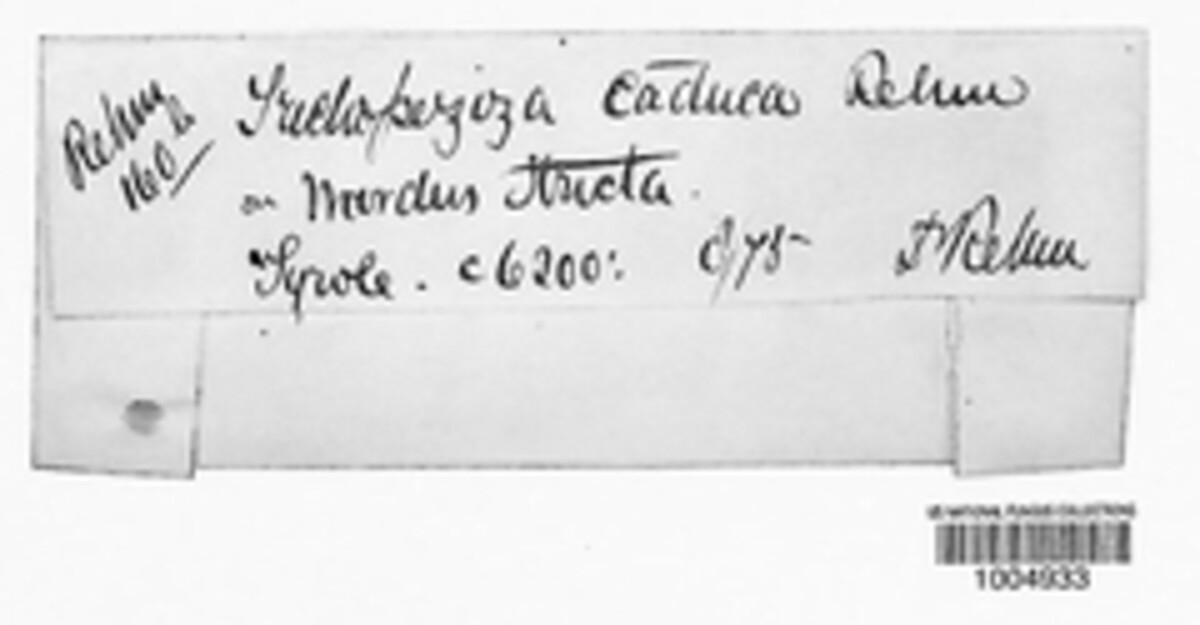 Rehm
160 b
Trichopeziza caduca Rehm
on Nardus stricta.
Tyrole. c 6200: 8/75 Dr Rehm
US NATIONAL FUNGUS COLLECTIONS
1004933